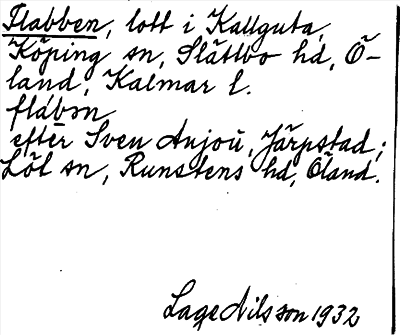 Flabben, lott i Kallguta,
Köping sn, Slättbo hd, Ö-
land, Kalmar l.
flábən
efter Sven Anjou, Järpstad;
Löt sn, Runstens hd, Öland.
Lage Nilsson 1932